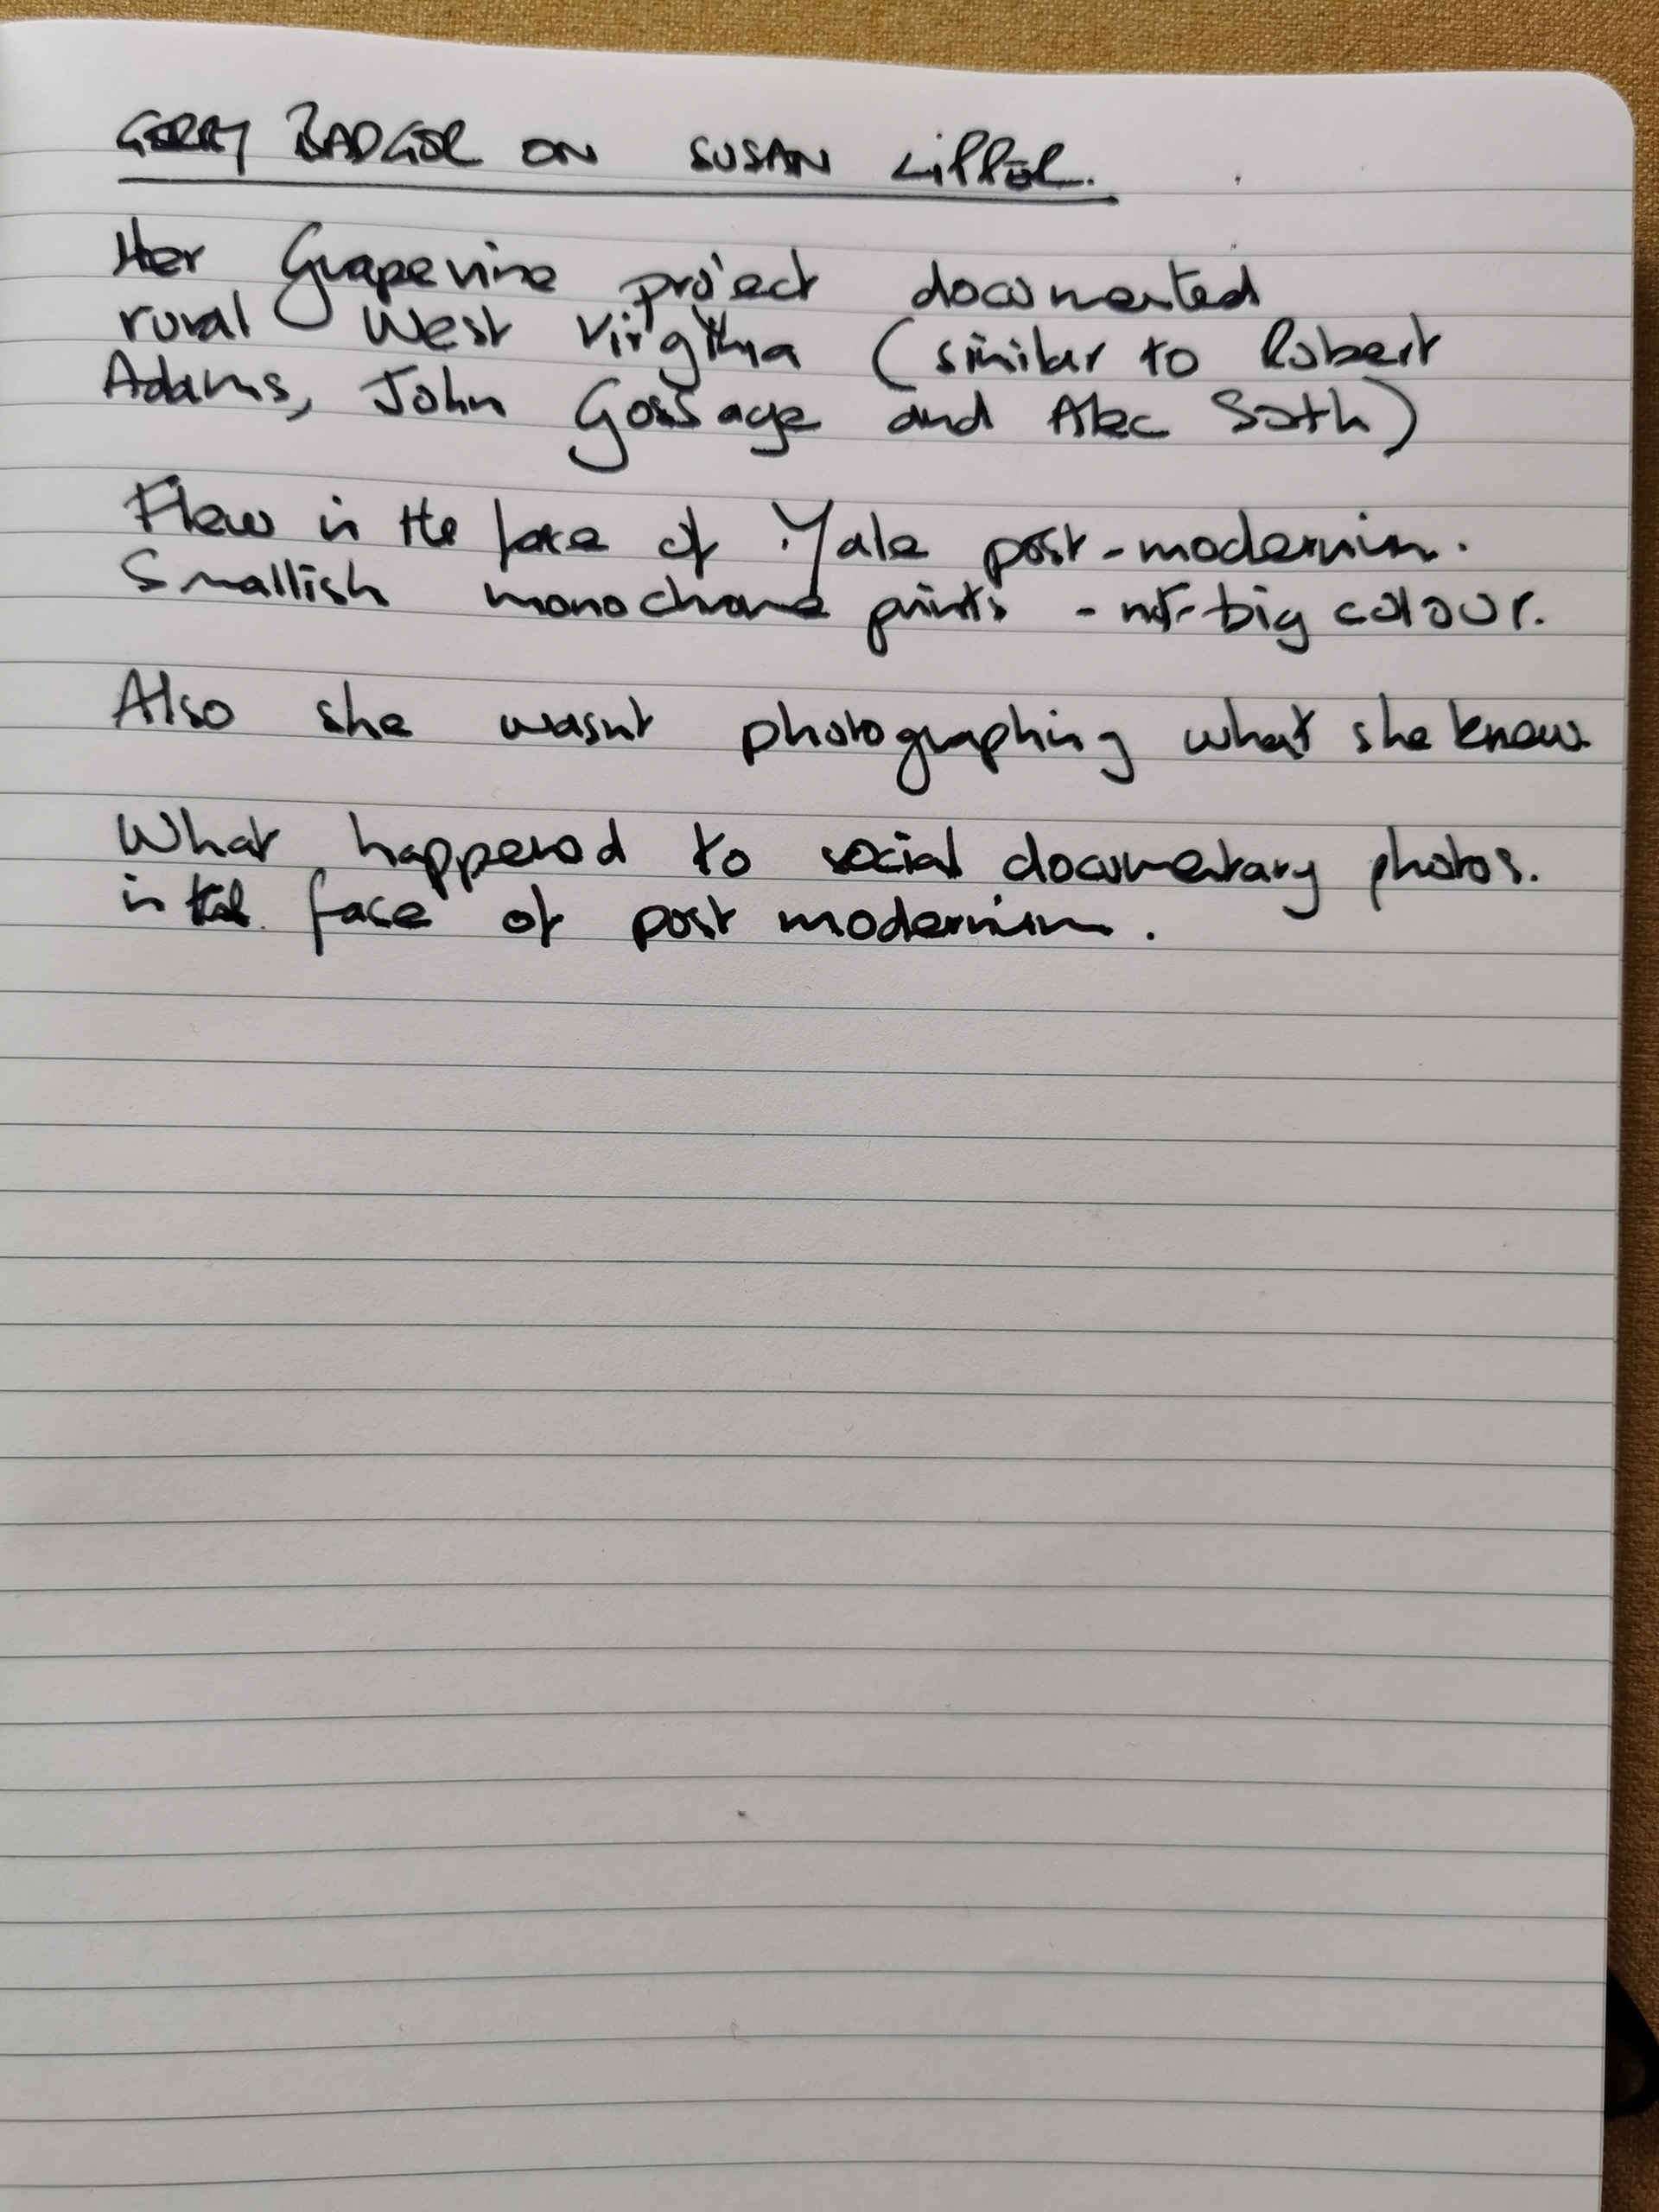 GERRY BADGER ON SUSAN LIPPER.
Her Grapevine project documented
rural West Virginia (similar to Robert
Adams, John Gossage and Alec Soth)
Flew in the face of Yale post-modernism.
Smallish monochrome prints - not big colour.
Also she wasn't photographing what she knew.
What happened to social documentary photos.
in the face of post modernism.